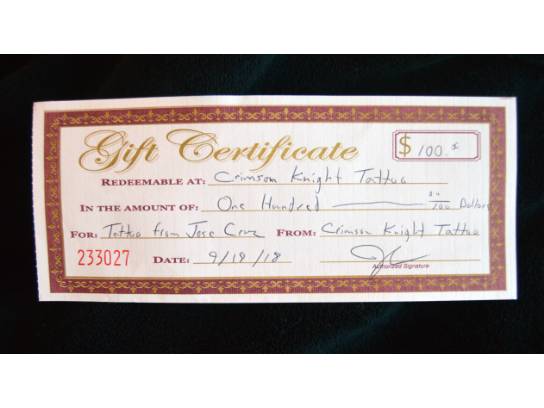 Gift Certificate
$ 100.
REDEEMABLE AT: Crimson Knight Tattoo
IN THE AMOUNT OF: One Hundred /100 Dollars
FOR: Tattoo from Jose Cruz FROM: Crimson Knight Tattoo
233027 DATE: 9/19/18
Authorized Signature